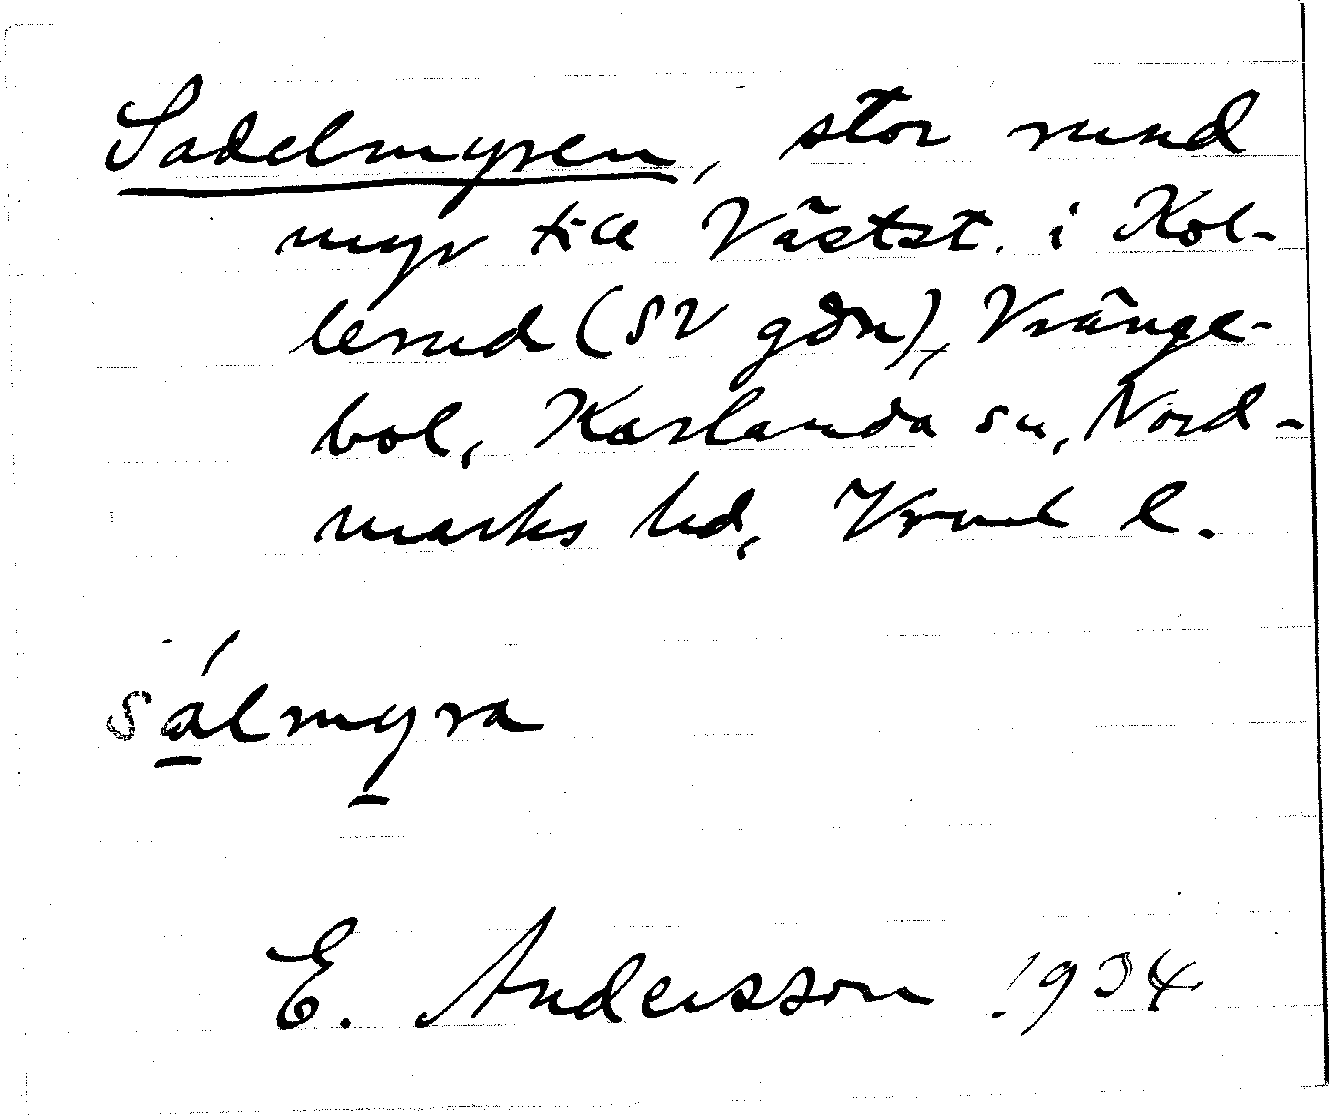 Sadelmyren, stor rund
myr till Västst. i Kol-
lerud (SV gdn), Vränge-
bol, Karlanda sn, Nord-
marks hd, Vrml l.
sálmyra
E. Andersson 1934